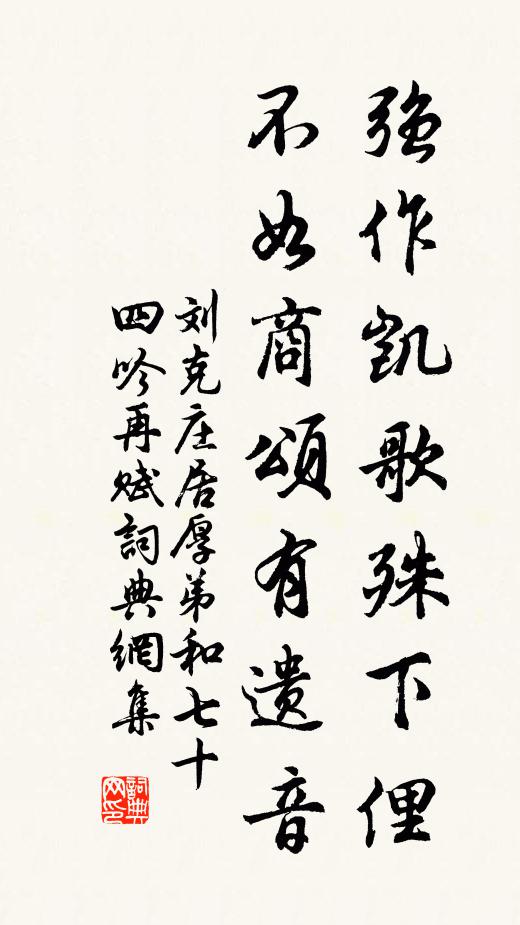 强作凯歌殊下俚
不如商颂有遗音
刘克庄居厚弟和七十
四吟再赋詞典網集
詞典网印